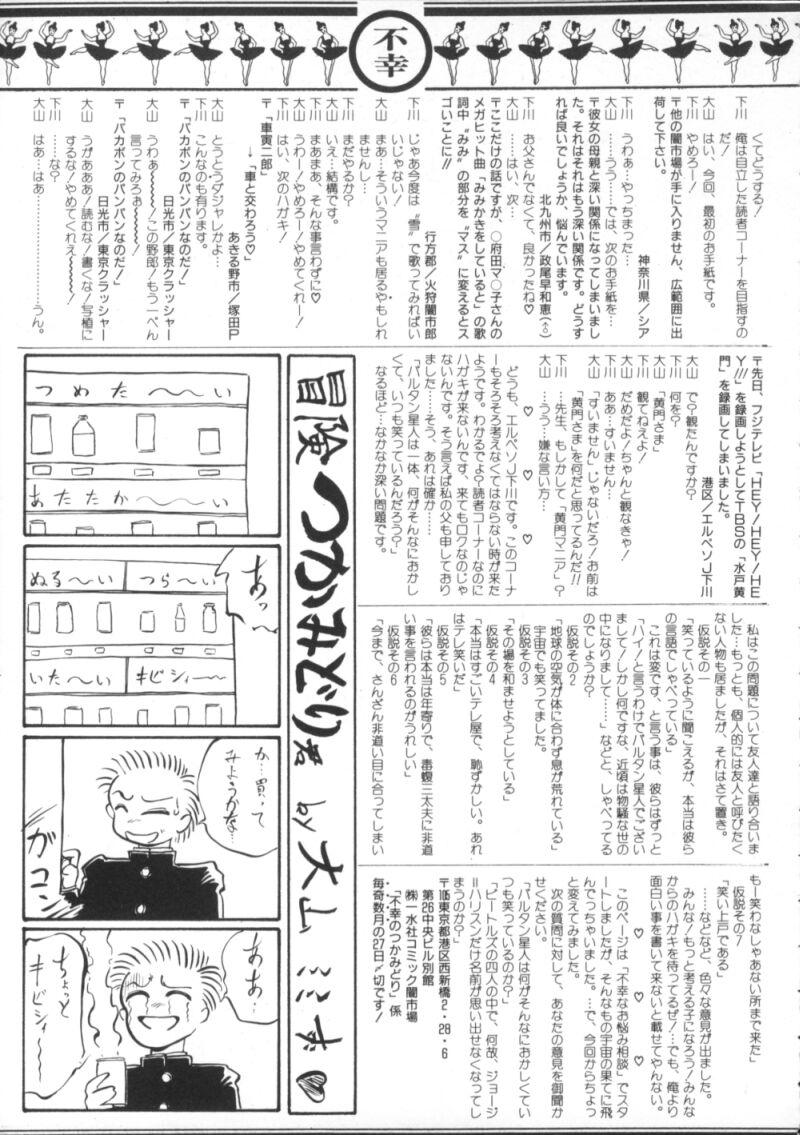 不幸
くてどうする!
下川　俺は自立した読者コーナーを目指すの
だ!
大山　はい、今回、最初のお手紙です。
下川　やめろー!
〒他の闇市場が手に入りません、広範囲に出
荷して下さい。
神奈川県/シア
下川　うわぁ…やっちまった…
大山　……うう……では、次のお手紙を…
〒彼女の母親と深い関係になってしまいまし
た。それはそれはもう深い関係です。どうす
れば良いでしょうか、悩んでいます。
北九州市/政尾早和恵(♂)
下川　お父さんでなくて、良かったね♡
大山　……はい、次…
〒ここだけの話ですが、○府田マ○子さんの
メガヒット曲「みみかきをしていると」の歌
詞中〝みみ〟の部分を〝マス〟に変えるとス
ゴいことに!!
行方郡/火狩闇市郎
下川　じゃあ今度は〝雪〟で歌ってみればい
いじゃない!
大山　まぁ…そういうマニアも居るやもしれ
ませんし…
下川　まだやるか?
大山　いえ…結構です。
下川　まあまあ、そんな事言わずに♡
大山　うわー!やめろー!やめてくれー!
下川　はい、次のハガキ!
〒「車寅二郎」
→車と交わろう♡」
あきる野市/塚田P
大山　とうとうダジャレかよ…
下川　こんなのも有ります。
〒「バカボンのパンパンなのだ!」
日光市/東京クラッシャー
大山　うわぁ〜〜〜〜!この野郎!もう一ぺん
言ってみろぉ〜〜〜〜!
〒「バカボンのパンパンなのだ!」
日光市/東京クラッシャー
大山　うがあああ!読むな!書くな!写植に
するな!やめてくれぇ〜〜〜!
下川　……な?
大山　はぁ…はぁ…………うん。
〒先日、フジテレビ「HEY!HEY!HE
Y!!!」を録画しようとしてTBSの「水戸黄
門」を録画してしまいました。
港区/エルベソJ下川
大山　で?観たんですか?
下川　何を?
大山　「黄門さま」
下川　観てねえよ!
大山　だめだよ!ちゃんと観なきゃ!
下川　ああ…すいません…
大山　「すいません」じゃないだろ!お前は
「黄門さま」を何だと思ってるんだ!!
下川　…先生、もしかして「黄門マニア」?
大山　…うう…嫌な言い方…
♡　♡　♡
どうも、エルベソJ下川です。このコーナ
ーもそろそろ考えなくてはならない時が来た
ようです。わかるでょ?読者コーナーなのに
ハガキが来ないんです。来てもロクなのじゃ
ないんです。そう言えば私の父も申しており
ました……そう、あれは確か……
「バルタン星人は一体、何がそんなにおかし
くて、いつも笑っているんだろう?」
なるほど…なかなか深い問題です。
私はこの問題について友人達と語り合いま
した…もっとも、個人的には友人と呼びたく
ない人物も居ましたが、それはさて置き。
仮説その一
「笑っているように聞こえるが、本当は彼ら
の言語でしゃべっている」
これは変です、と言う事は、彼らはずっと
「ハイ!と言うわけでバルタン星人でござい
まして!しかし何ですな、近頃は物騒な世の
中になりまして……」などと、しゃべってる
のでしょうか?
仮説その2
「地球の空気が体に合わず息が荒れている」
宇宙でも笑ってました。
仮説その3
「その場を和ませようとしている」
仮説その4
「本当はすごいテレ屋で、恥ずかしい。あれ
はテレ笑いだ」
仮説その5
「彼らは本当は年寄りで、毒蝮三太夫に非道
い事を言われるのがうれしい」
仮説その6
「今まで、さんざん非道い目に合ってしまい
もー笑わなしゃあない所まで来た」
仮説その7
「笑い上戸である」
……などなど、色々な意見が出ました。
みんな!もっと考える子になろう!みんな
からのハガキを待ってるぜ!…でも、俺より
面白い事を書いて来ないと載せてやんない。
♡　♡　♡
このページは「不幸なお悩み相談」でスタ
ートしましたが、そんなもの宇宙の果てに飛
んでっちゃいました。…で、今回からちょっ
と変えてみました。
次の質問に対して、あなたの意見を御聞か
せください。
「バルタン星人は何がそんなにおかしくてい
つも笑っているのか?」
「ビートルズの四人の中で、何故、ジョージ
=ハリスンだけ名前が思い出せなくなってし
まうのか?」
〒105東京都港区西新橋2・28・6
第26中央ビル別館
㈱一水社コミック闇市場
「不幸のつかみどり」係
毎奇数月の27日〆切です!
冒険つかみどり君 by 大山ミミず♡
つめた〜〜い
あたたか〜〜い
あっ〜
つら〜い
ぬる〜い
キビシィ〜
いた〜い
か…買って
みようかな…
ガコン
ああ…
ちょっと
キビシィ〜